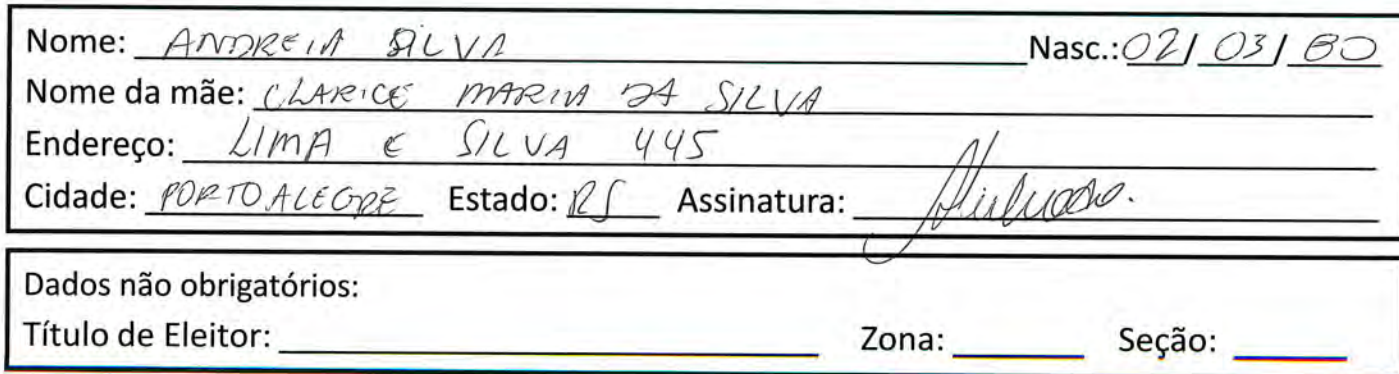 Nome: ANDREIA SILVA Nasc.: 02/03/80
Nome da mãe: CLARICE MARIA DA SILVA
Endereço: LIMA E SILVA 445
Cidade: PORTO ALEGRE Estado: RS Assinatura:
Dados não obrigatórios:
Título de Eleitor: Zona: Seção: